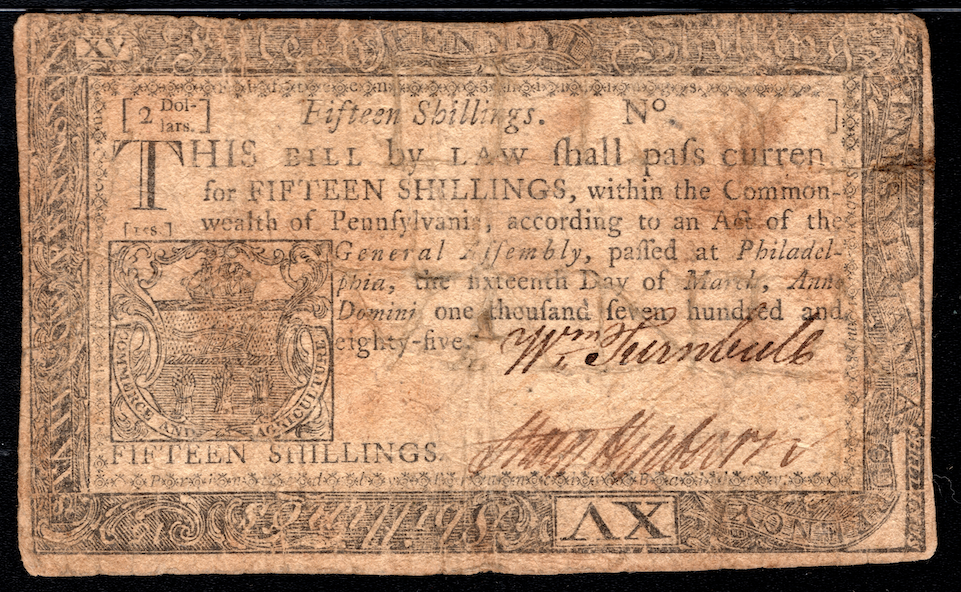 XV
Shilling
PENNSYL
[2 Dol-
lars.]
Fifteen Shillings.
No.
]
THIS BILL by LAW ſhall paſs curren
for FIFTEEN SHILLINGS, within the Common-
wealth of Pennſylvania, according to an Act of the
[ 15s. ]
General Aſſembly, paſſed at Philadel-
phia, the ſixteenth Day of March, Anno
Domini one thouſand ſeven hundred and
eighty-five.
Wm Turnbull
COMMERCE AND AGRICULTURE
FIFTEEN SHILLINGS.
Shillings
XV